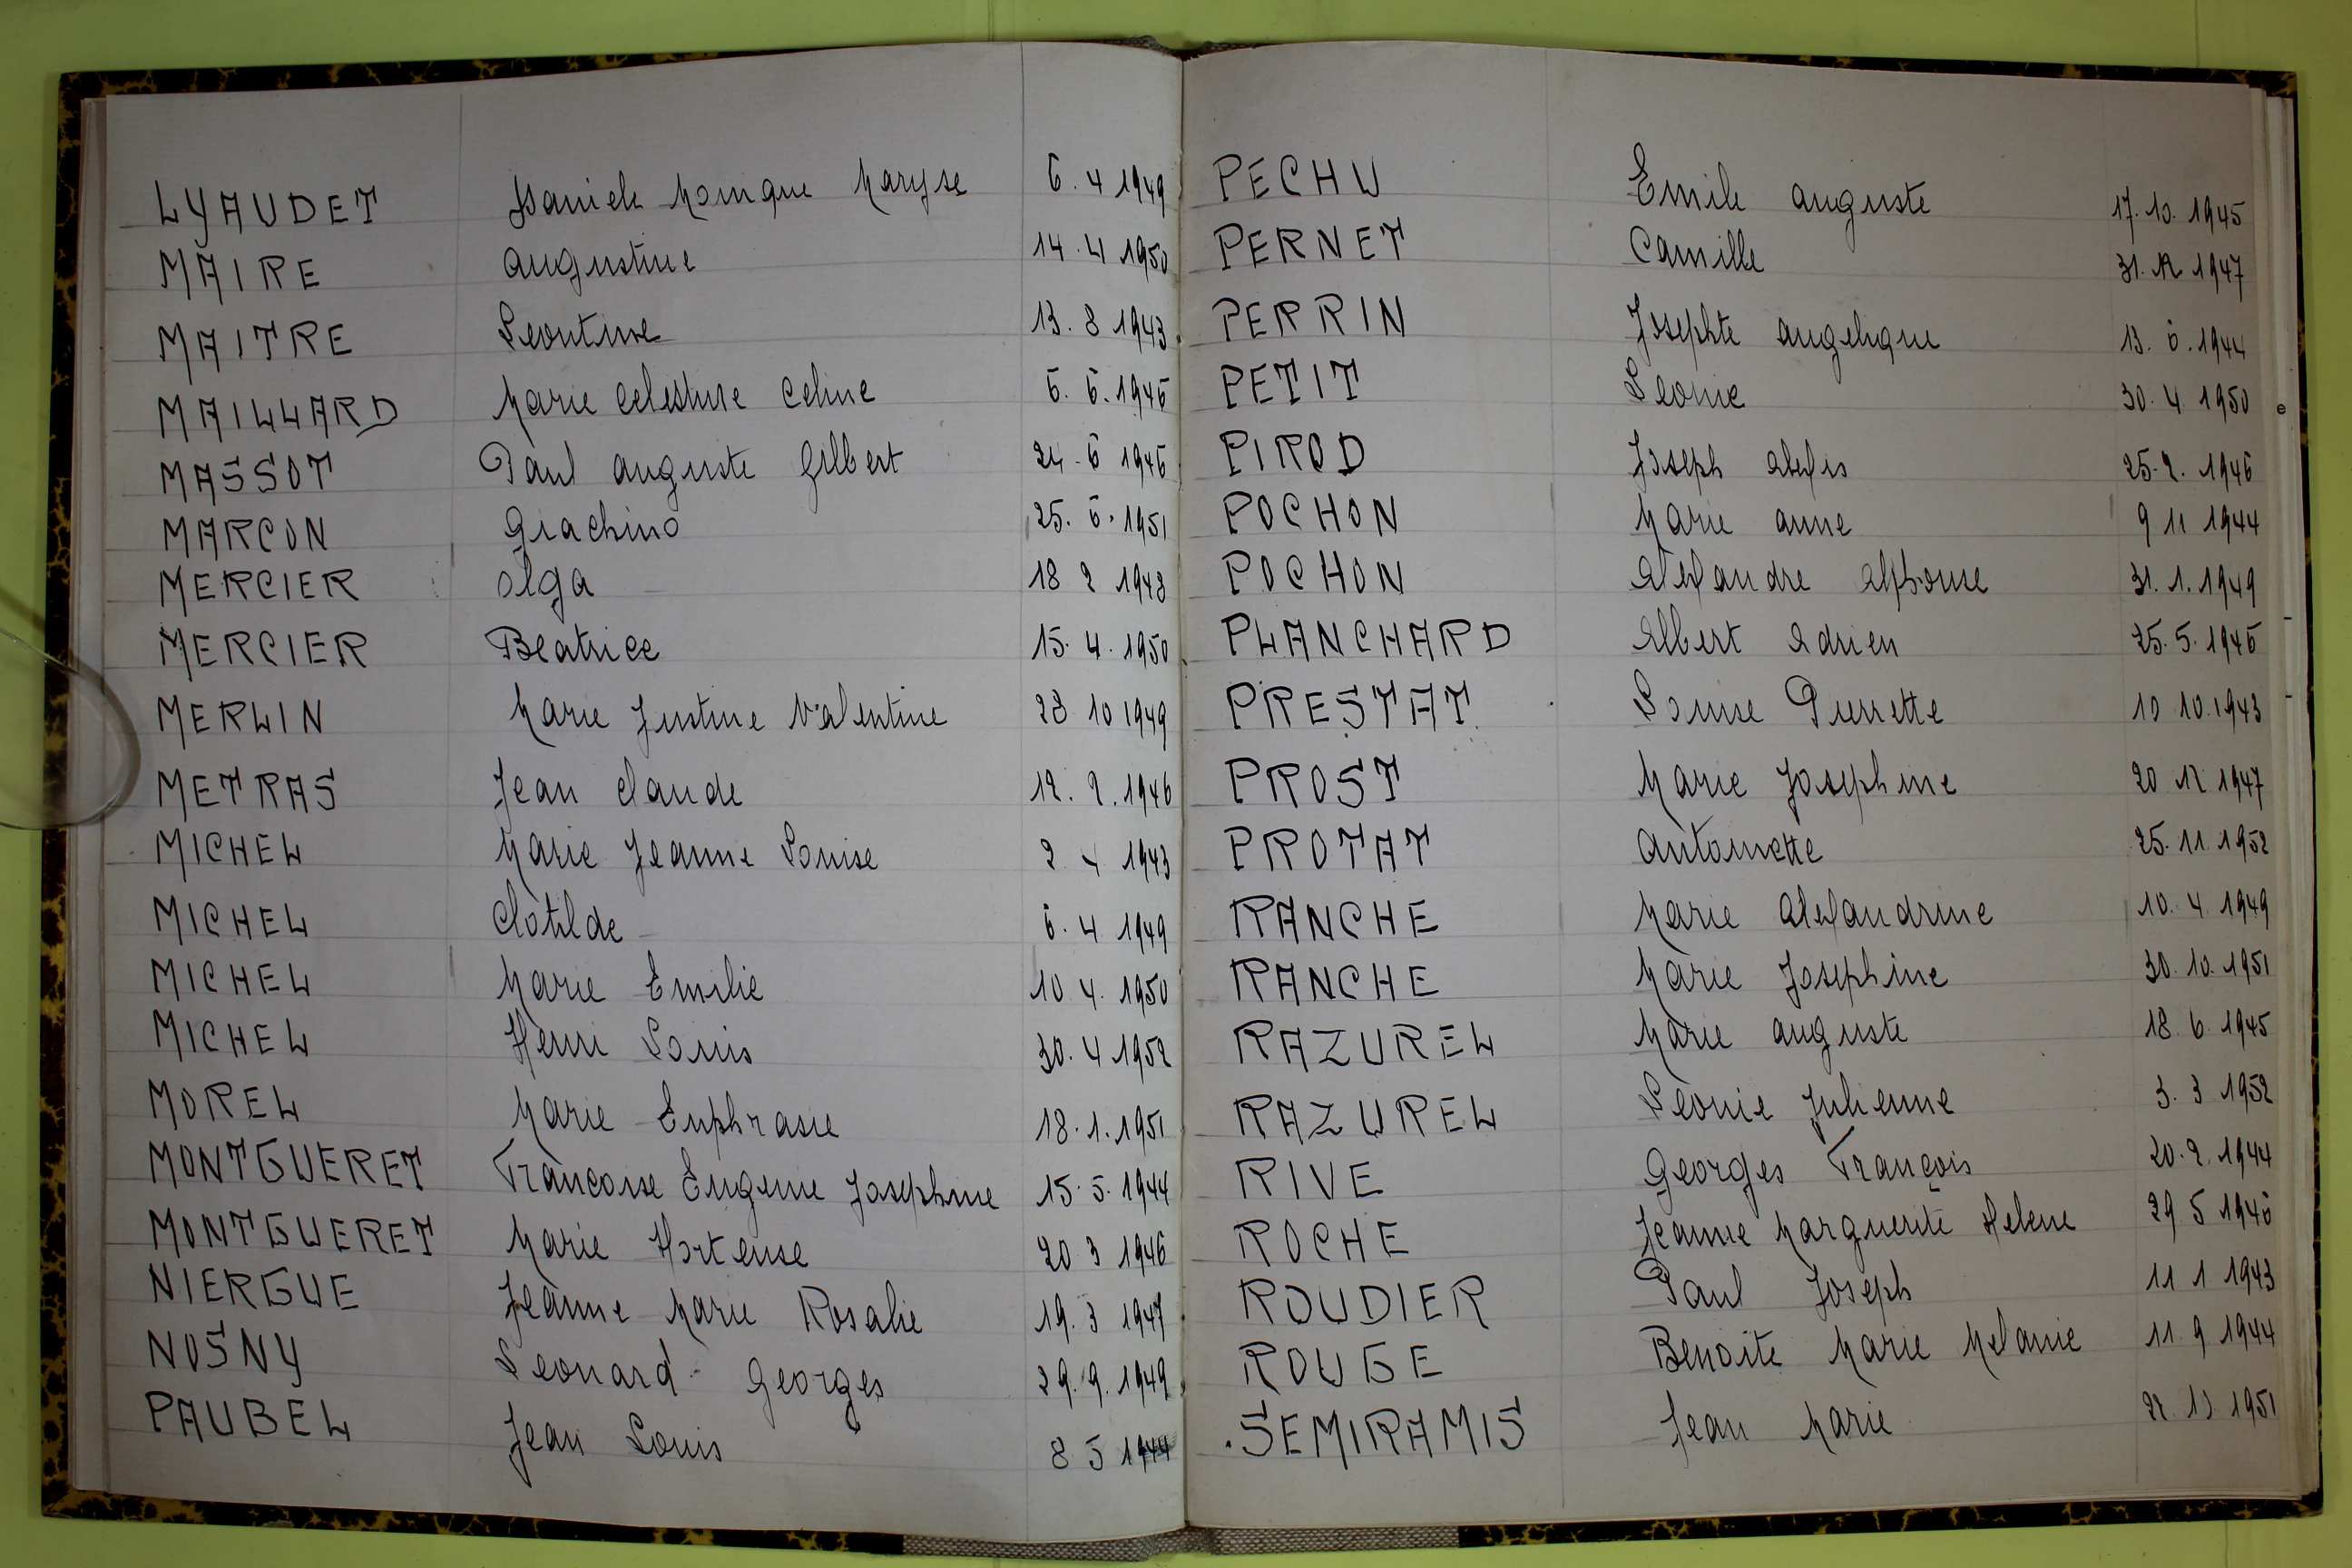 LYAUDET Daniele Monique Maryse 6.4 1949
MAIRE Augustine 14.4 1950
MAITRE Leontine 13.8 1943
MAILLARD Marie Celestine Celine 6.6.1946
MASSOT Paul Auguste Gilbert 24.6 1946
MARCON Giachino 25.6.1951
MERCIER Olga 18 2 1943
MERCIER Beatrice 15.4.1950
MERLIN Marie Justine Valentine 28 10 1949
METRAS Jean Claude 12.2.1946
MICHEL Marie Jeanne Louise 2 4 1943
MICHEL Clotilde 6.4 1949
MICHEL Marie Emilie 10 4. 1950
MICHEL Henri Louis 30.4 1952
MOREL Marie Euphrasie 18.1.1951
MONTGUERET Françoise Eugenie Josephine 15.5.1944
MONTGUERET Marie Hortense 20 3 1946
NIERGUE Jeanne Marie Rosalie 19.3 1947
NOSNY Leonard Georges 29.9.1949
PAUBEL Jean Louis 8 5 1944
PECHU Emile Auguste 17.10.1945
PERNET Camille 31.12 1947
PERRIN Josephte Angelique 13.6.1944
PETIT Leonie 30.4 1950
PIROD Joseph Alexis 25.2.1946
POCHON Marie Anne 9 11 1944
POCHON Alexandre Alphonse 31.1.1949
PLANCHARD Albert Adrien 25.5.1946
PRESTAT Louise Pierrette 10 10.1943
PROST Marie Josephine 20 12 1947
PROTAT Antoinette 25.11.1952
RANCHE Marie Alexandrine 10.4 1949
RANCHE Marie Josephine 30.10.1951
RAZUREL Marie Auguste 18 6 1945
RAZUREL Léonie Julienne 3.3 1952
RIVE Georges François 20.2.1944
ROCHE Jeanne Marguerite Helene 29 5 1946
ROUDIER Paul Joseph 11 1 1943
ROUGE Benoite Marie Melanie 11 9 1944
SEMIRAMIS Jean Marie 1951